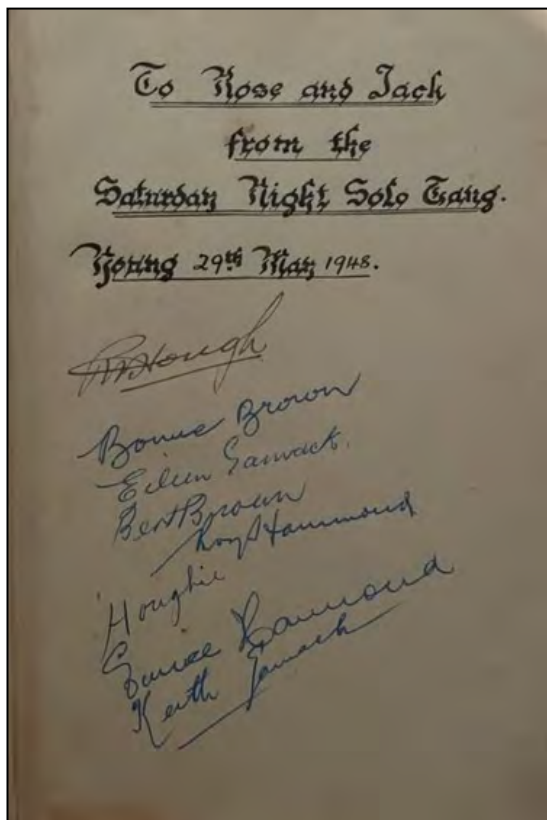 To Rose and Jack
from the
Saturday Night Solo Gang.
Young 29th May 1948.
Hough
Bonnie Brown
Eileen
Bert Brown
Roy Hammond
'Houghie
Hammond
Keith